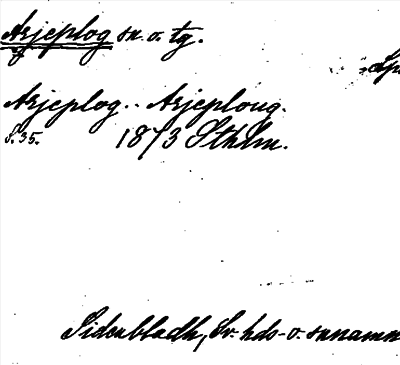 Arjeplog sn. o. tg.
Lp
Arjeplog.. Arjeploug.
S. 35. 1873 Sthlm.
Sidenbladh, Sv. hds- o. snnamn